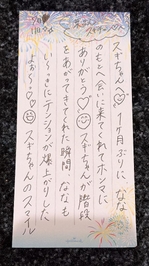 スギちゃんへ♡ 1ヶ月ぶりに なな
のもとへ会いに来てくれてホンマに
ありがとう♡ スギちゃんが階段
をあがってきてくれた瞬間 ななも
テンションが爆上がりした
スギちゃんのスマイル